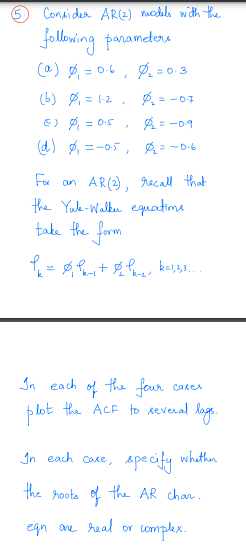 5. Consider AR(2) models with the
following parameters
(a) ∅₁ = 0.6 , ∅₂ = 0.3
(b) ∅₁ = 1.2 , ∅₂ = -0.7
(c) ∅₁ = 0.5 , ∅₂ = -0.9
(d) ∅₁ = -0.5 , ∅₂ = -0.6
For an AR(2), recall that
the Yule-Walker equations
take the form
ρₖ = ∅₁ρₖ₋₁ + ∅₂ρₖ₋₂, k=1,2,3...
In each of the four cases
plot the ACF to several lags.
In each case, specify whether
the roots of the AR char.
eqn are real or complex.